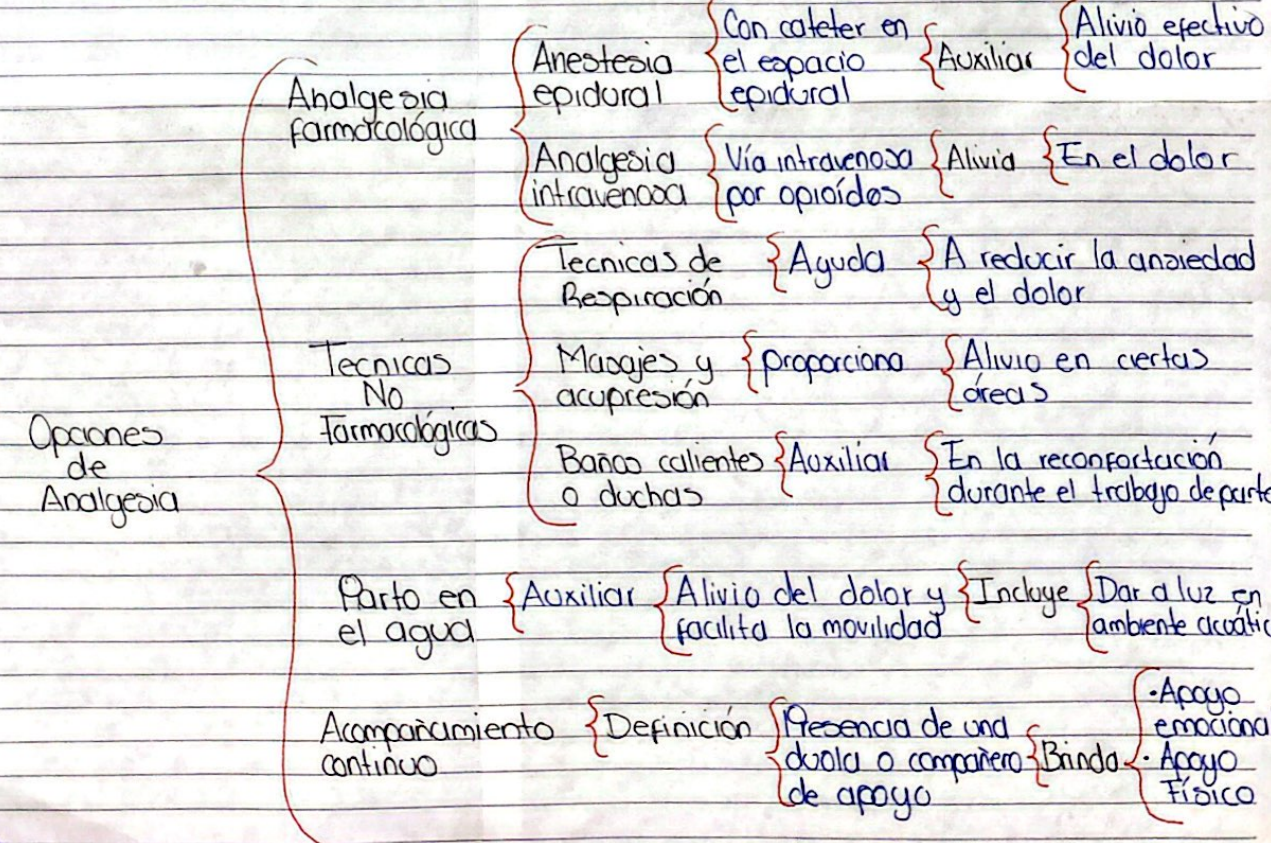 Opciones
de
Analgesia
Analgesia
farmacológica
Anestesia
epidural
Con cateter en
el espacio
epidural
Auxiliar
Alivio efectivo
del dolor
Analgesia
intravenosa
Vía intravenosa
por opioídes
Alivia
En el dolor
Tecnicas
No
Farmacológicas
Tecnicas de
Respiración
Ayuda
A reducir la ansiedad
y el dolor
Masajes y
acupresión
proporciona
Alivio en ciertas
áreas
Baños calientes
o duchas
Auxiliar
En la reconfortación
durante el trabajo de parto
Parto en
el agua
Auxiliar
Alivio del dolor y
facilita la movilidad
Incluye
Dar a luz en
ambiente acuátic
Acompañamiento
continuo
Definición
Presencia de una
duola o compañero
de apoyo
Brinda
·Apoyo
emociona
·Apoyo
Físico